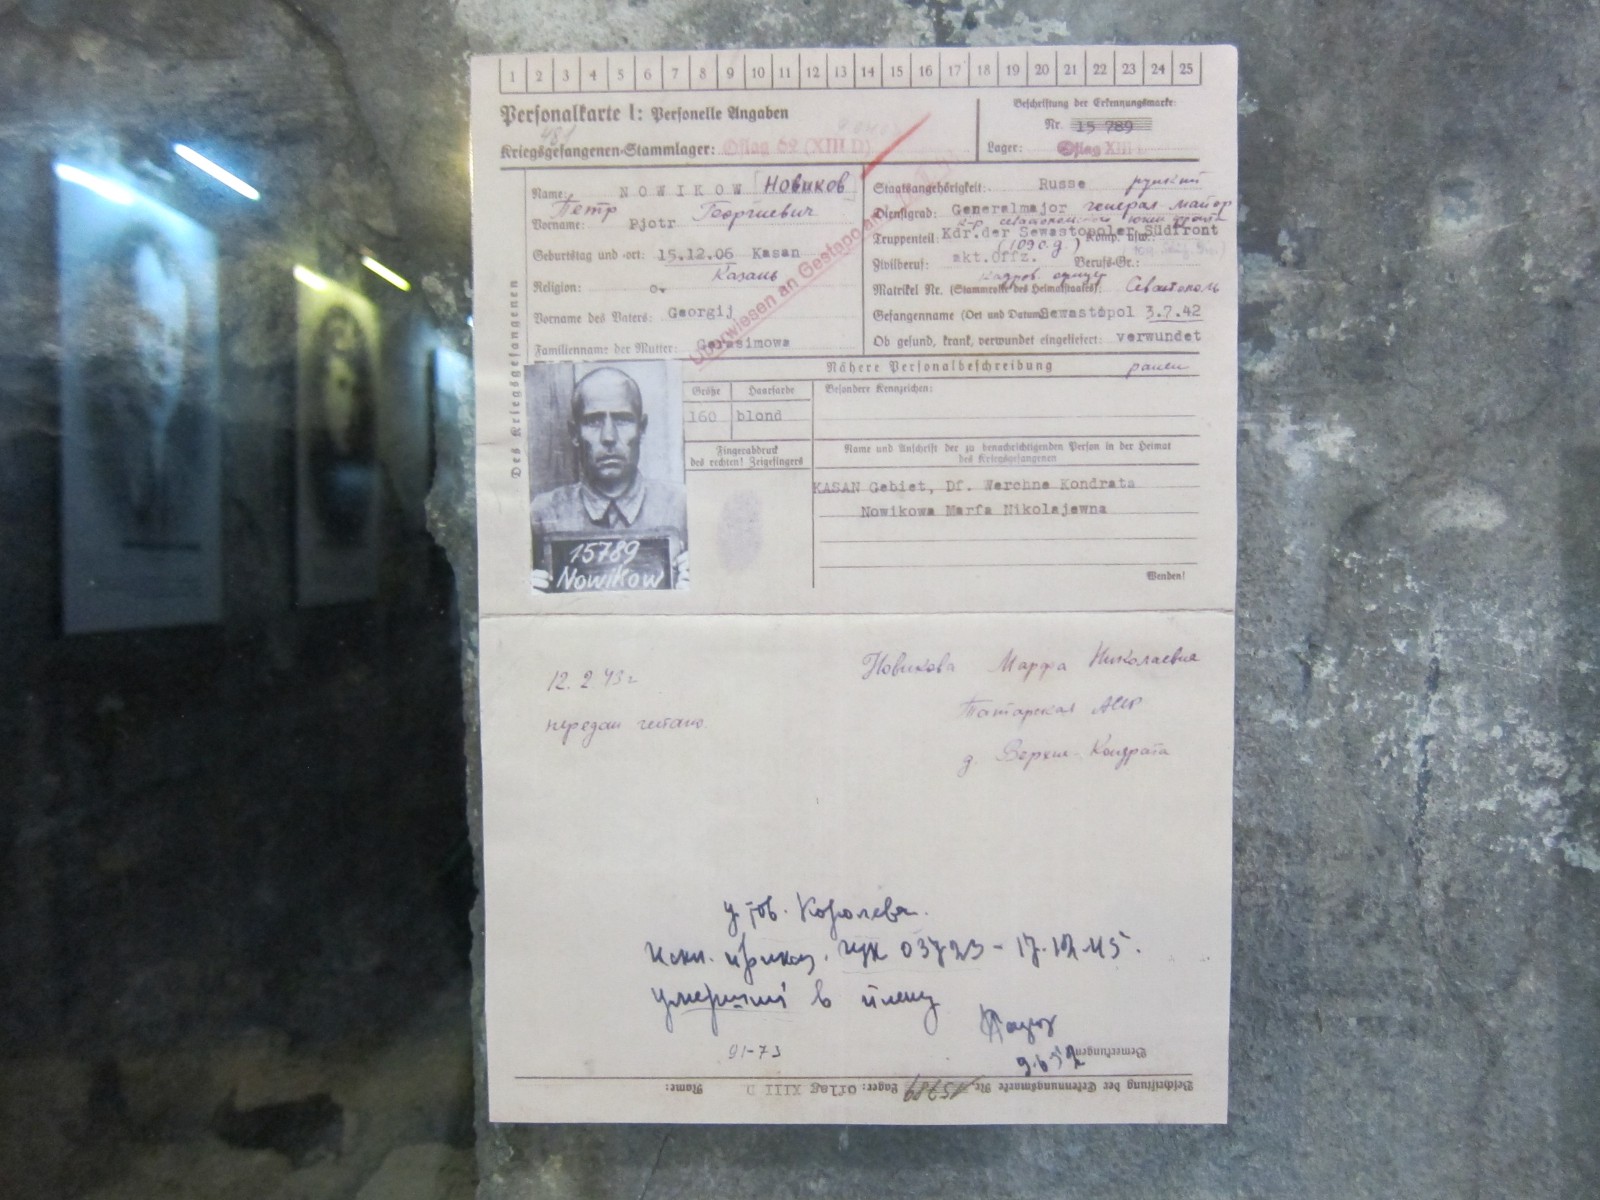 1 2 3 4 5 6 7 8 9 10 11 12 13 14 15 16 17 18 19 20 21 22 23 24 25
Personalkarte I: Personelle Angaben
Kriegsgefangenen-Stammlager: Oflag 62 (XIII D)
Beschriftung der Erkennungsmarke:
Nr. 15 789
Lager: Oflag XIII
Des Kriegsgefangenen
Name: NOWIKOW Новиков
Петр Георгиевич
Vorname: Pjotr
Geburtstag und -ort: 15.12.06 Kasan
Казань
Religion:
Vorname des Vaters: Georgij
Familienname der Mutter: Gerasimowa
Überwiesen an Gestapo am
Staatsangehörigkeit: Russe русский
Dienstgrad: Generalmajor генерал-майор
Truppenteil: Kdr.der Sewastopoler Südfront Komp. usw.:
Zivilberuf: akt.Offz. Berufs-Gr.:
кадров. офицер
Matrikel Nr. (Stammrolle des Heimatstaates): Севастополь
Gefangennahme (Ort und Datum): Sewastopol 3.7.42
Ob gesund, krank, verwundet eingeliefert: verwundet
ранен
Nähere Personalbeschreibung
Größe Haarfarbe
160 blond
Besondere Kennzeichen:
Fingerabdruck
des rechten! Zeigefingers
Name und Anschrift der zu benachrichtigenden Person in der Heimat
des Kriegsgefangenen
KASAN Gebiet, Df. Werchne Kondrata
Nowikowa Marfa Nikolajewna
Wenden!
15789
Nowikow
12. 2 43 г
передан гестапо.
Новикова Марфа Николаевна
Татарская АССР
д. Верхне-Кондрата
у тов. Королева.
Искл. приказ. ГУК 03723 - 17.12.45.
умерший в плену
9.6.52
91-73
Bemerkungen:
Beschriftung der Erkennungsmarke Nr. 15789 Lager: Oflag XIII D Name: